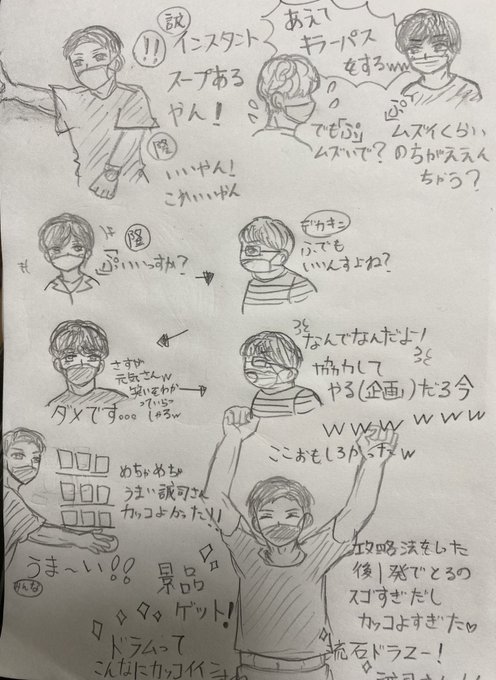 訳
!!
インスタント
スープある
やん!
隆
いいやん!
これいいやん
あえて
キラーパス
をするww
でも「ぷ」
ムズいで?
「ぷ」
ムズイくらい
のちがええん
ちゃう?
隆
「ぷ」いいっすか?
デカキン
ふでも
いいんすよね?
さすが
元気さんw
笑いをわか
っていらっ
しゃるw
ダメです...
なんでなんだよ!
協力して
やる(企画)だろ今
wwwwwww
ここおもしろかったーw
めちゃめちゃ
うまい誠司さん
カッコよかった!!
うま〜い!!
みんな
景品
ゲット!
ドラムって
こんなにカッコイイン
攻略法をした
後1発でとるの
スゴすぎだし
カッコよすぎた♡
流石ドラマー!